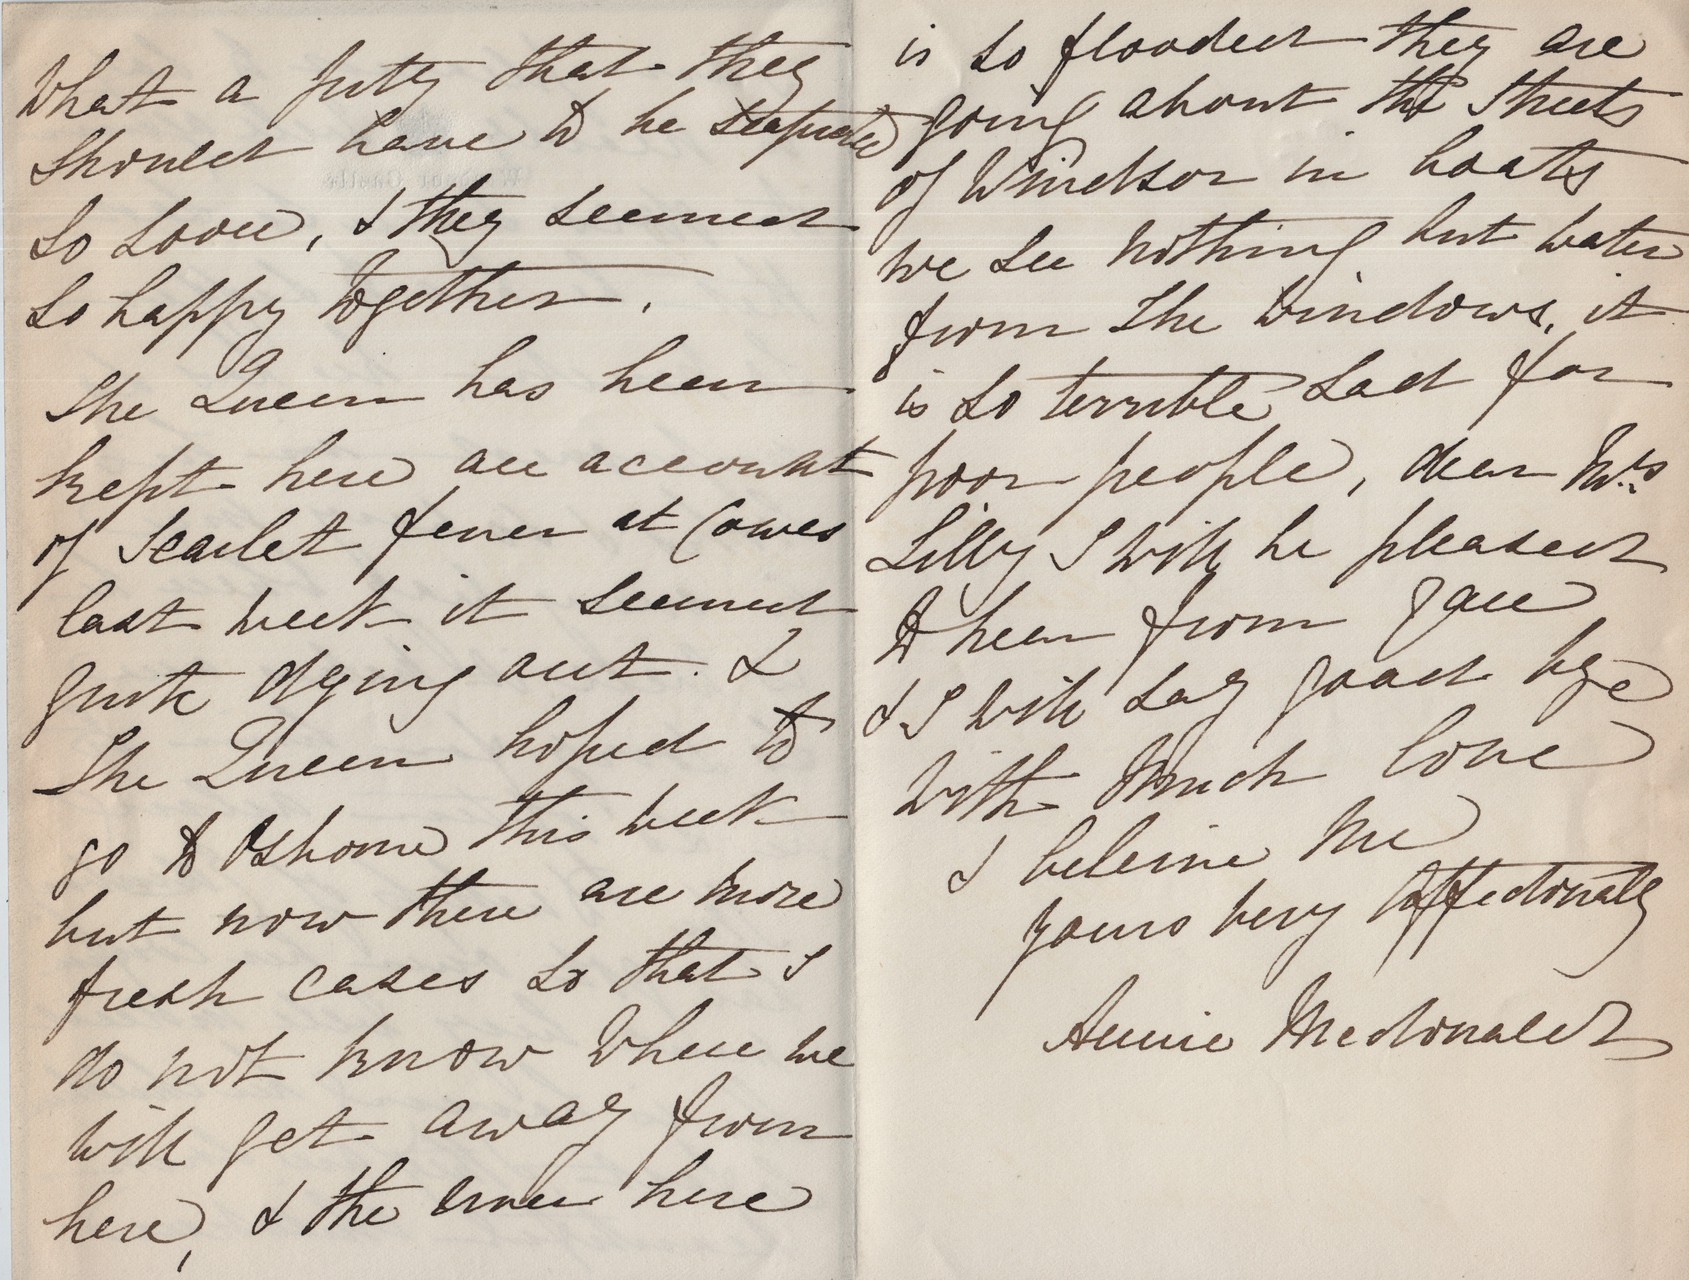 What a pity that they
Should have to be seeprated
so soon, & they seemed
so happy together.
The Queen has been
kept here on account
of Scarlet fever at Cowes
last week it seemed
quite dying out. &
The Queen hoped to
go to Osborne this week
but now there are more
fresh cases so that I
do not know when we
will get away from
here, & the river here
is so flooded they are
going about the streets
of Windsor in boats
we see nothing but water
from the windows, it
is so terrible sad for
poor people, dear Mrs
Lilly I will be pleased
to hear from you
& I will say good bye
with much love
& beleive me
yours very affectionatly
Annie Mcdonald